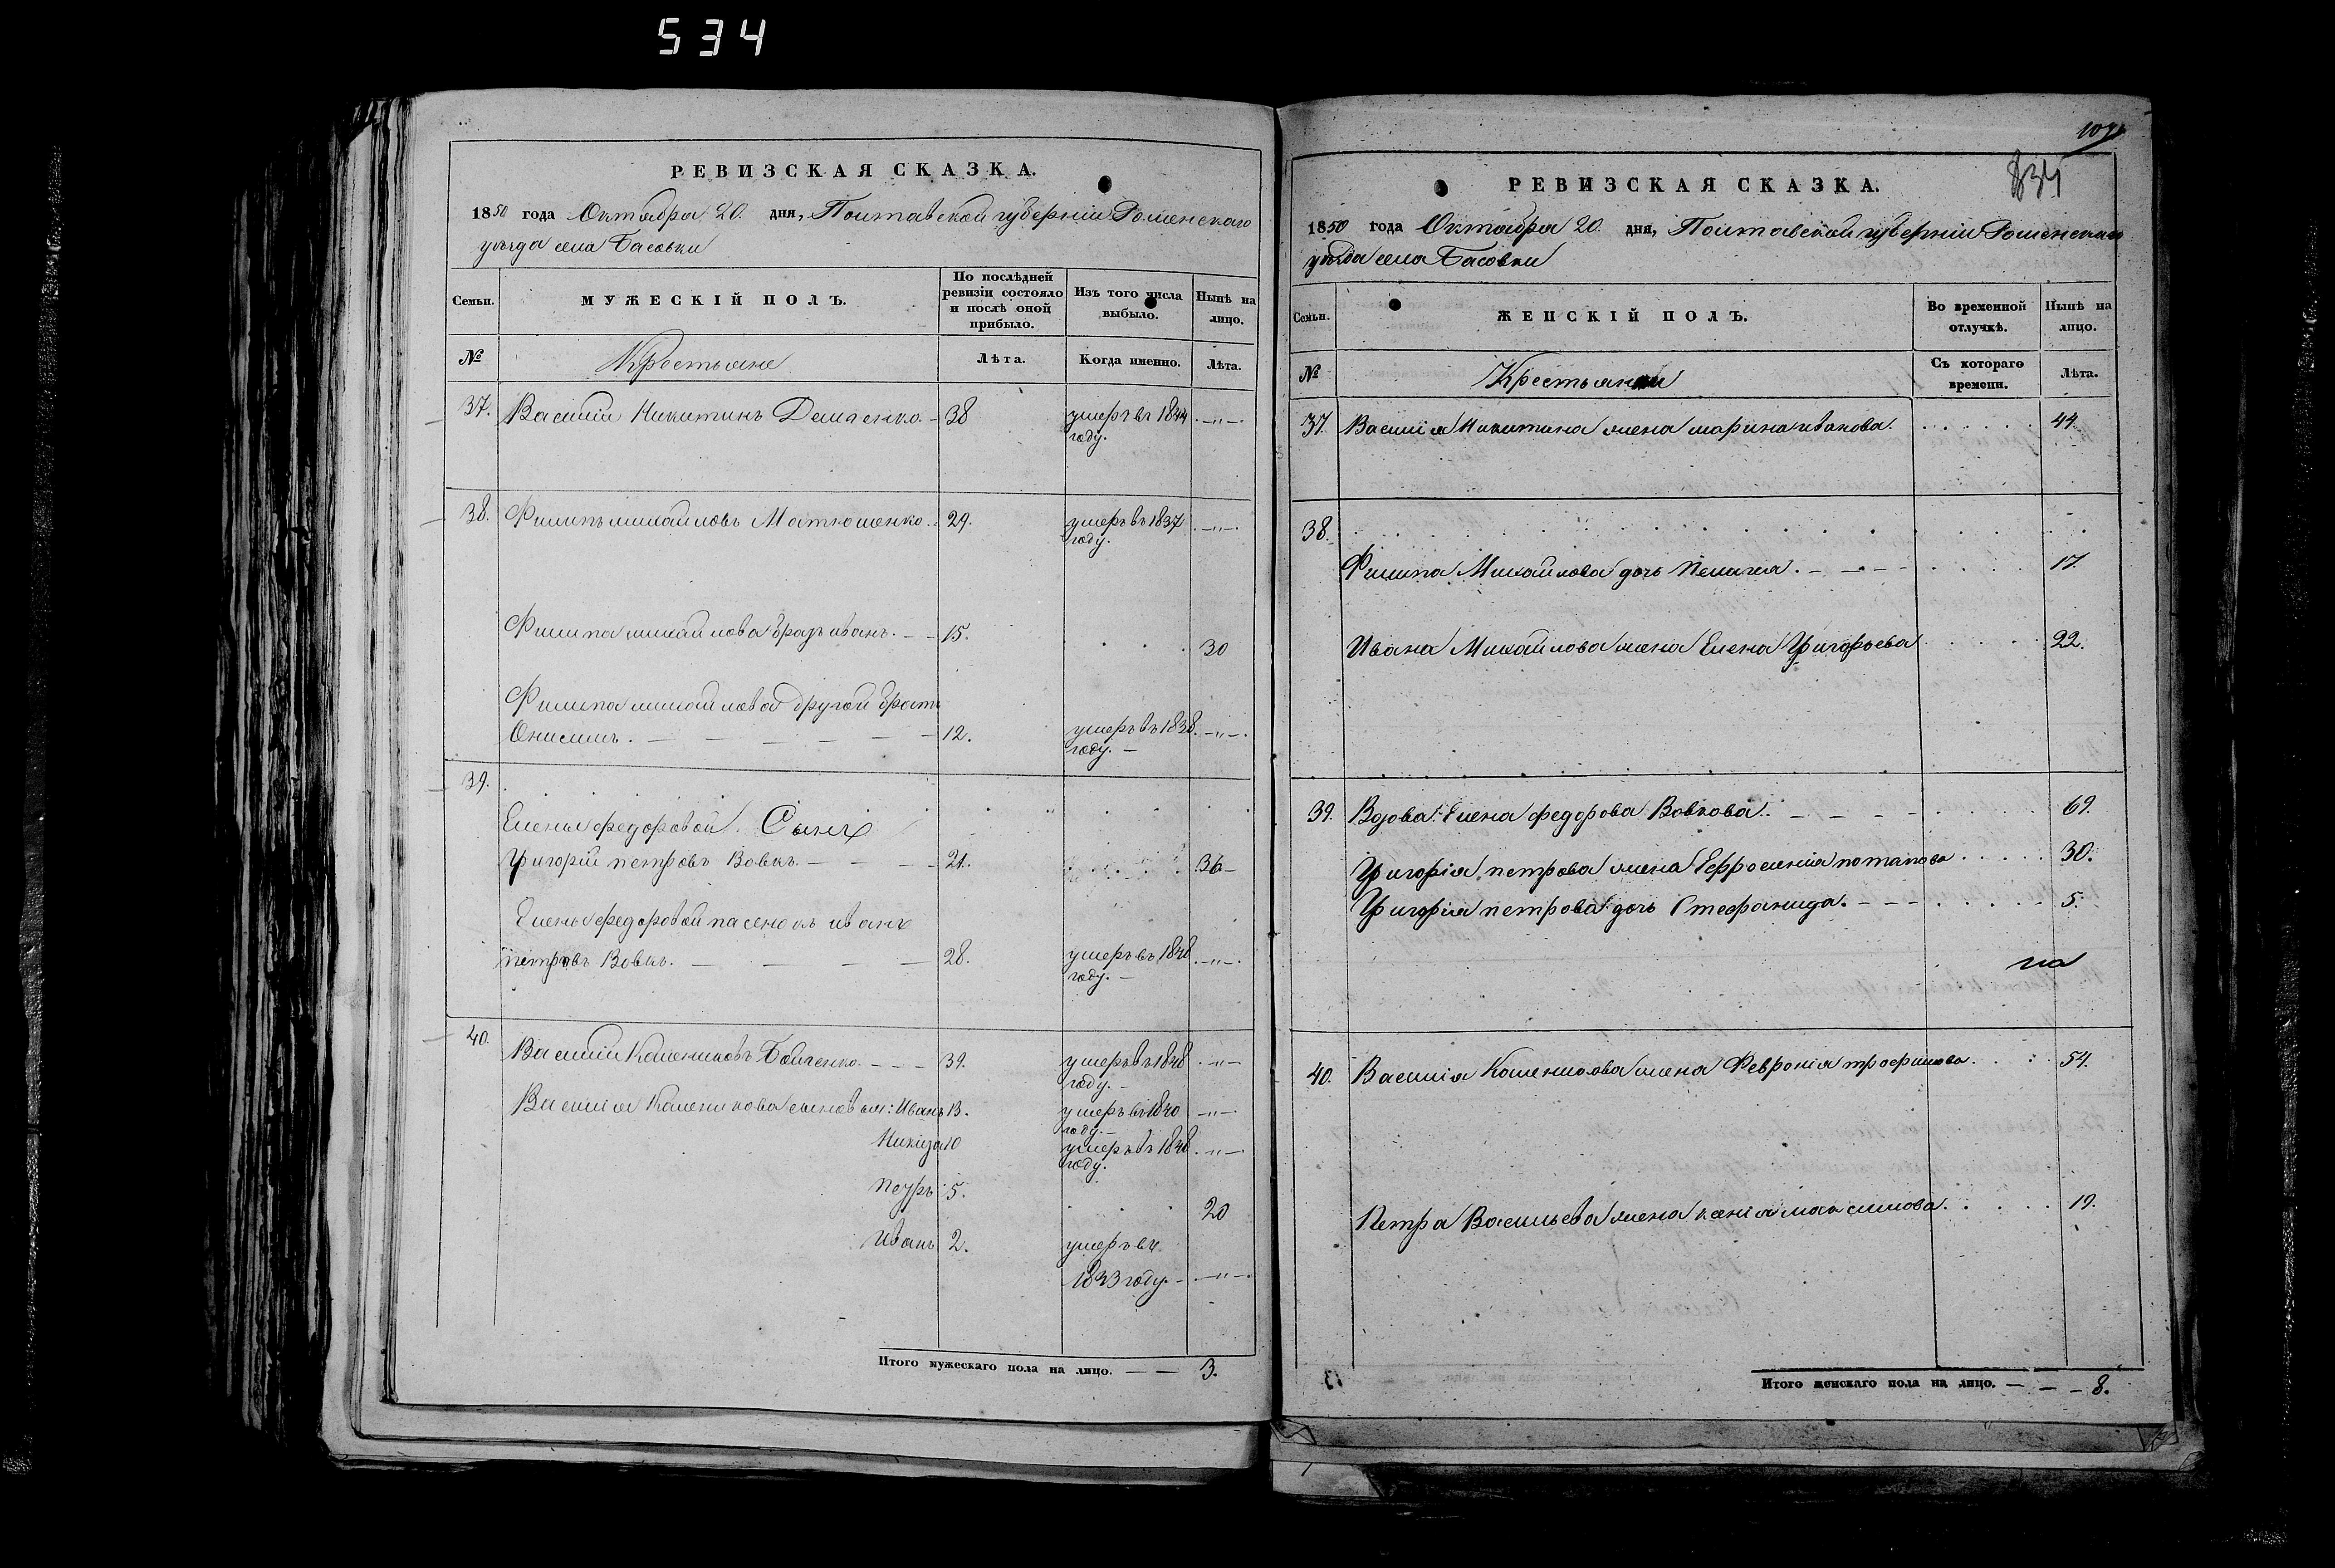 534
РЕВИЗСКАЯ СКАЗКА.
1850 года Октября 20. дня, Полтавской губерніи Роменскаго
уѣзда села Басовки
Семьи.
МУЖЕСКІЙ ПОЛЪ.
По послѣдней ревизіи состояло и послѣ оной прибыло.
Изъ того числа выбыло.
Нынѣ на лицо.
№ Крестьяне Лѣта. Когда именно. Лѣта.
37. Василій Никитинъ Демченко. - 38 умеръ въ 1844 —„—.
году.
38. Филипъ михайловъ Матюшенко. 29. умеръ въ 1837 —„—.
году.
Филипа михайлова братъ иванъ. — 15. 30
Филипа михайлова другой братъ
Онисимъ. — 12. умеръ въ 1838 —„—.
году. —
39.
Елены федоровой Сынъ
Григорій петровъ Вовкъ. — 21. 36
Елены федоровой пасенокъ иванъ
петровъ Вовкъ. — 28. умеръ въ 1848 —„—.
году. —
40. Василій Калениковъ Бойченко. — 39. умеръ въ 1848 —„—
году. —
Василія Каленикова сыновья: Иванъ 13. умеръ въ 1840 —„—.
году. —
Никита 10 умеръ въ 1848 —„—.
году.
Петръ 5. 20
иванъ 2. умеръ въ
1843 году. — —„—.
Итого мужескаго пола на лицо. — — 3.
834
РЕВИЗСКАЯ СКАЗКА.
1850 года Октября 20. дня, Полтавской губерніи Роменскаго
уѣзда села Басовки
Семьи.
ЖЕНСКІЙ ПОЛЪ.
Во временной отлучкѣ.
Нынѣ на лицо.
№ Крестьянки Съ котораго времени. Лѣта.
37. Василія Никитина жена марина иванова. 44.
38.
Филипа Михайлова дочь Пелагея. — 17.
Ивана Михайлова жена Елена Григорьева 22.
39. Вдова Елена федорова Вовкова. — 69.
Григорія петрова жена Ефросинія потапова 30.
Григорія петрова дочь Стефанида. — 5.
40. Василія Каленикова жена Февронія трофимова. 54.
Петра Васильева жена ксенія максимова. 19.
Итого женскаго пола на лицо. — — 8.